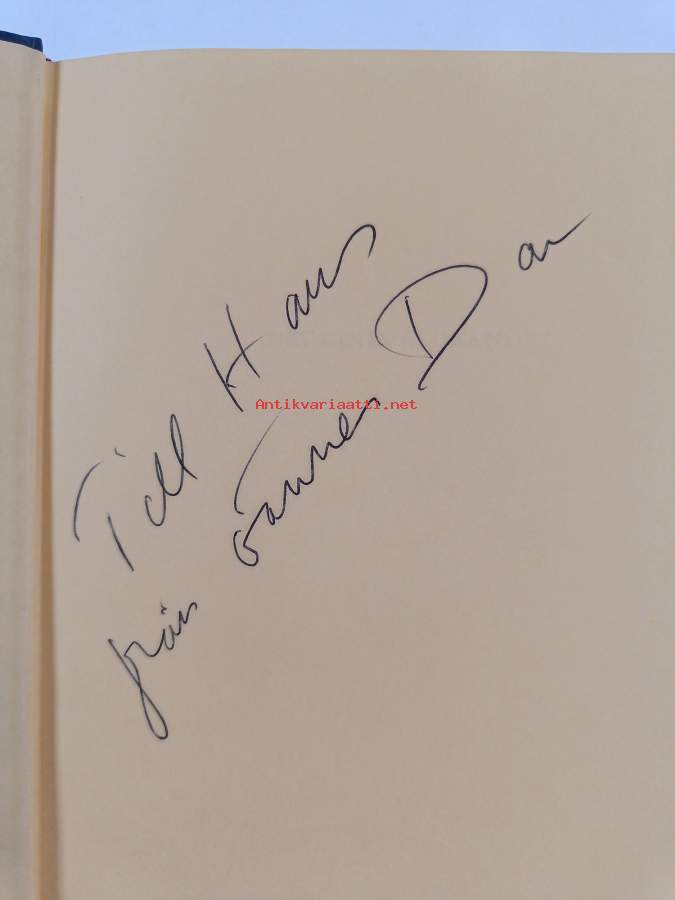 Till Hans
från vännen Dan
Antikvariaatti.net